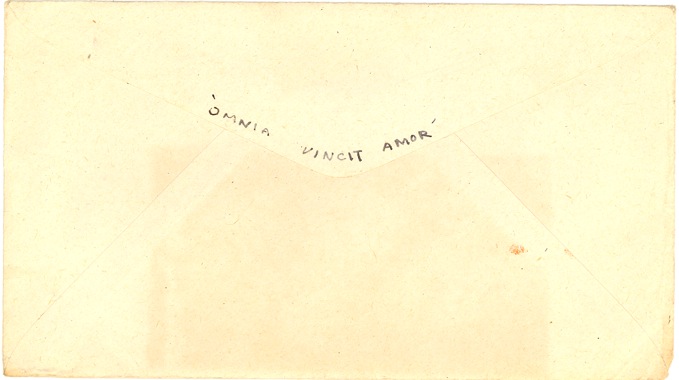 'OMNIA VINCIT AMOR'